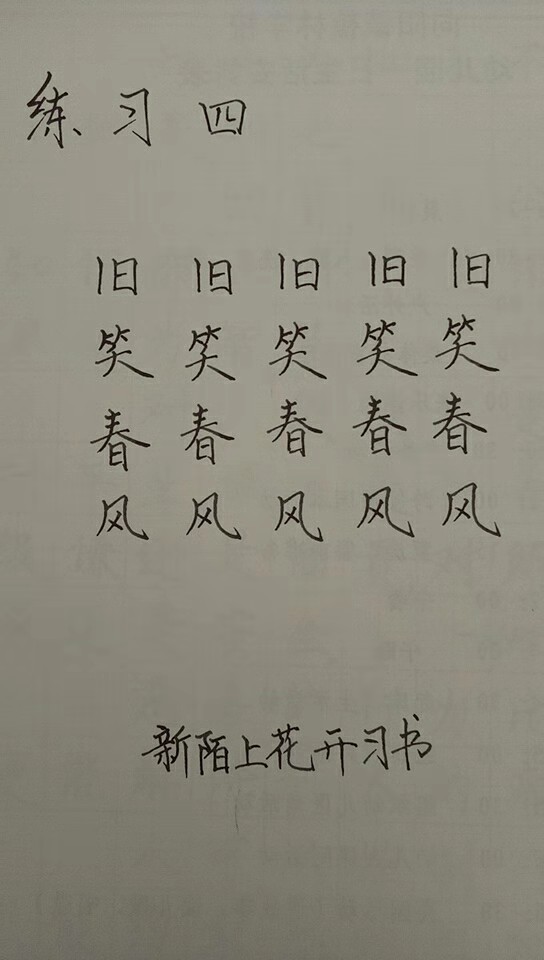 练习四
旧旧旧旧旧
笑笑笑笑笑
春春春春春
风风风风风
新陌上花开习书